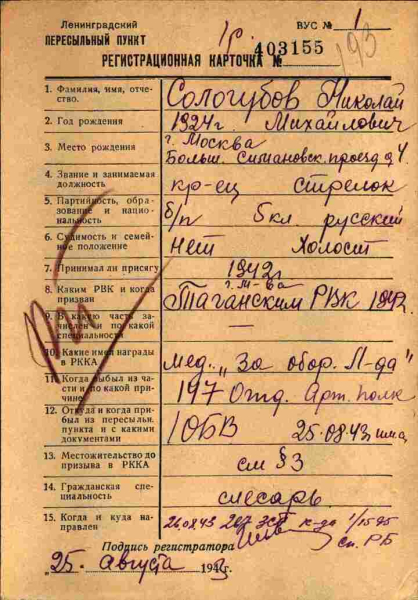 Ленинградский
ПЕРЕСЫЛЬНЫЙ ПУНКТ
ВУС № 1
193
403155
РЕГИСТРАЦИОННАЯ КАРТОЧКА №
1. Фамилия, имя, отчество. Сологубов Николай
2. Год рождения 1924г Михайлович
3. Место рождения г. Москва
Больш. Симановск. проезд д 4.
4. Звание и занимаемая должность кр-ец стрелок
5. Партийность, образование и национальность б/п 5кл. русский
6. Судимость и семейное положение нет Холост
7. Принимал ли присягу 1942г.
8. Каким РВК и когда призван г. М-ва
Таганским РВК 1942.
9. В какую часть зачислен и по какой специальности —
10. Какие имел награды в РККА мед. „За обор. Л-да"
11. Когда выбыл из части и по какой причине 197 Отд. Арт. полк
12. Откуда и когда прибыл из пересыльн. пункта и с какими документами ОБВ 25.08.43
13. Местожительство до призыва в РККА см §3
14. Гражданская специальность слесарь
15. Когда и куда направлен 26.08.43 к-да
Подпись регистратора
"25" Августа 1943